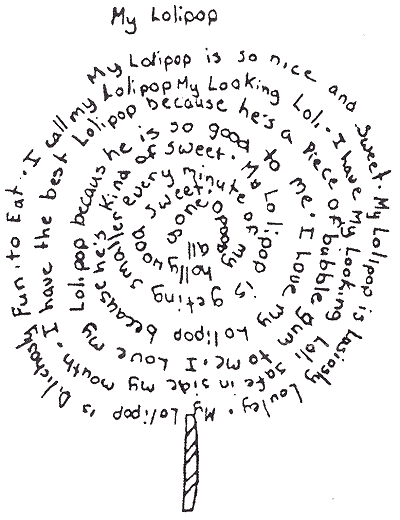 My Lolipop
My Lolipop is so nice and Sweet. My Lolipop is Lasiosly Louley. My Lolipop is Dilichosly Fun. to Eat. I call my Lolipop My Looking Loli. I have My Looking Loli safe in side my mouth. I have the best Lolipop because he's a piece of bubble gum to me. I Love my Lolipop becaus he is so good to me. I Love my Lolipop because he's kind of sweet. My Lolipop is geting smaller every minute of my hollywood sweet. all gone